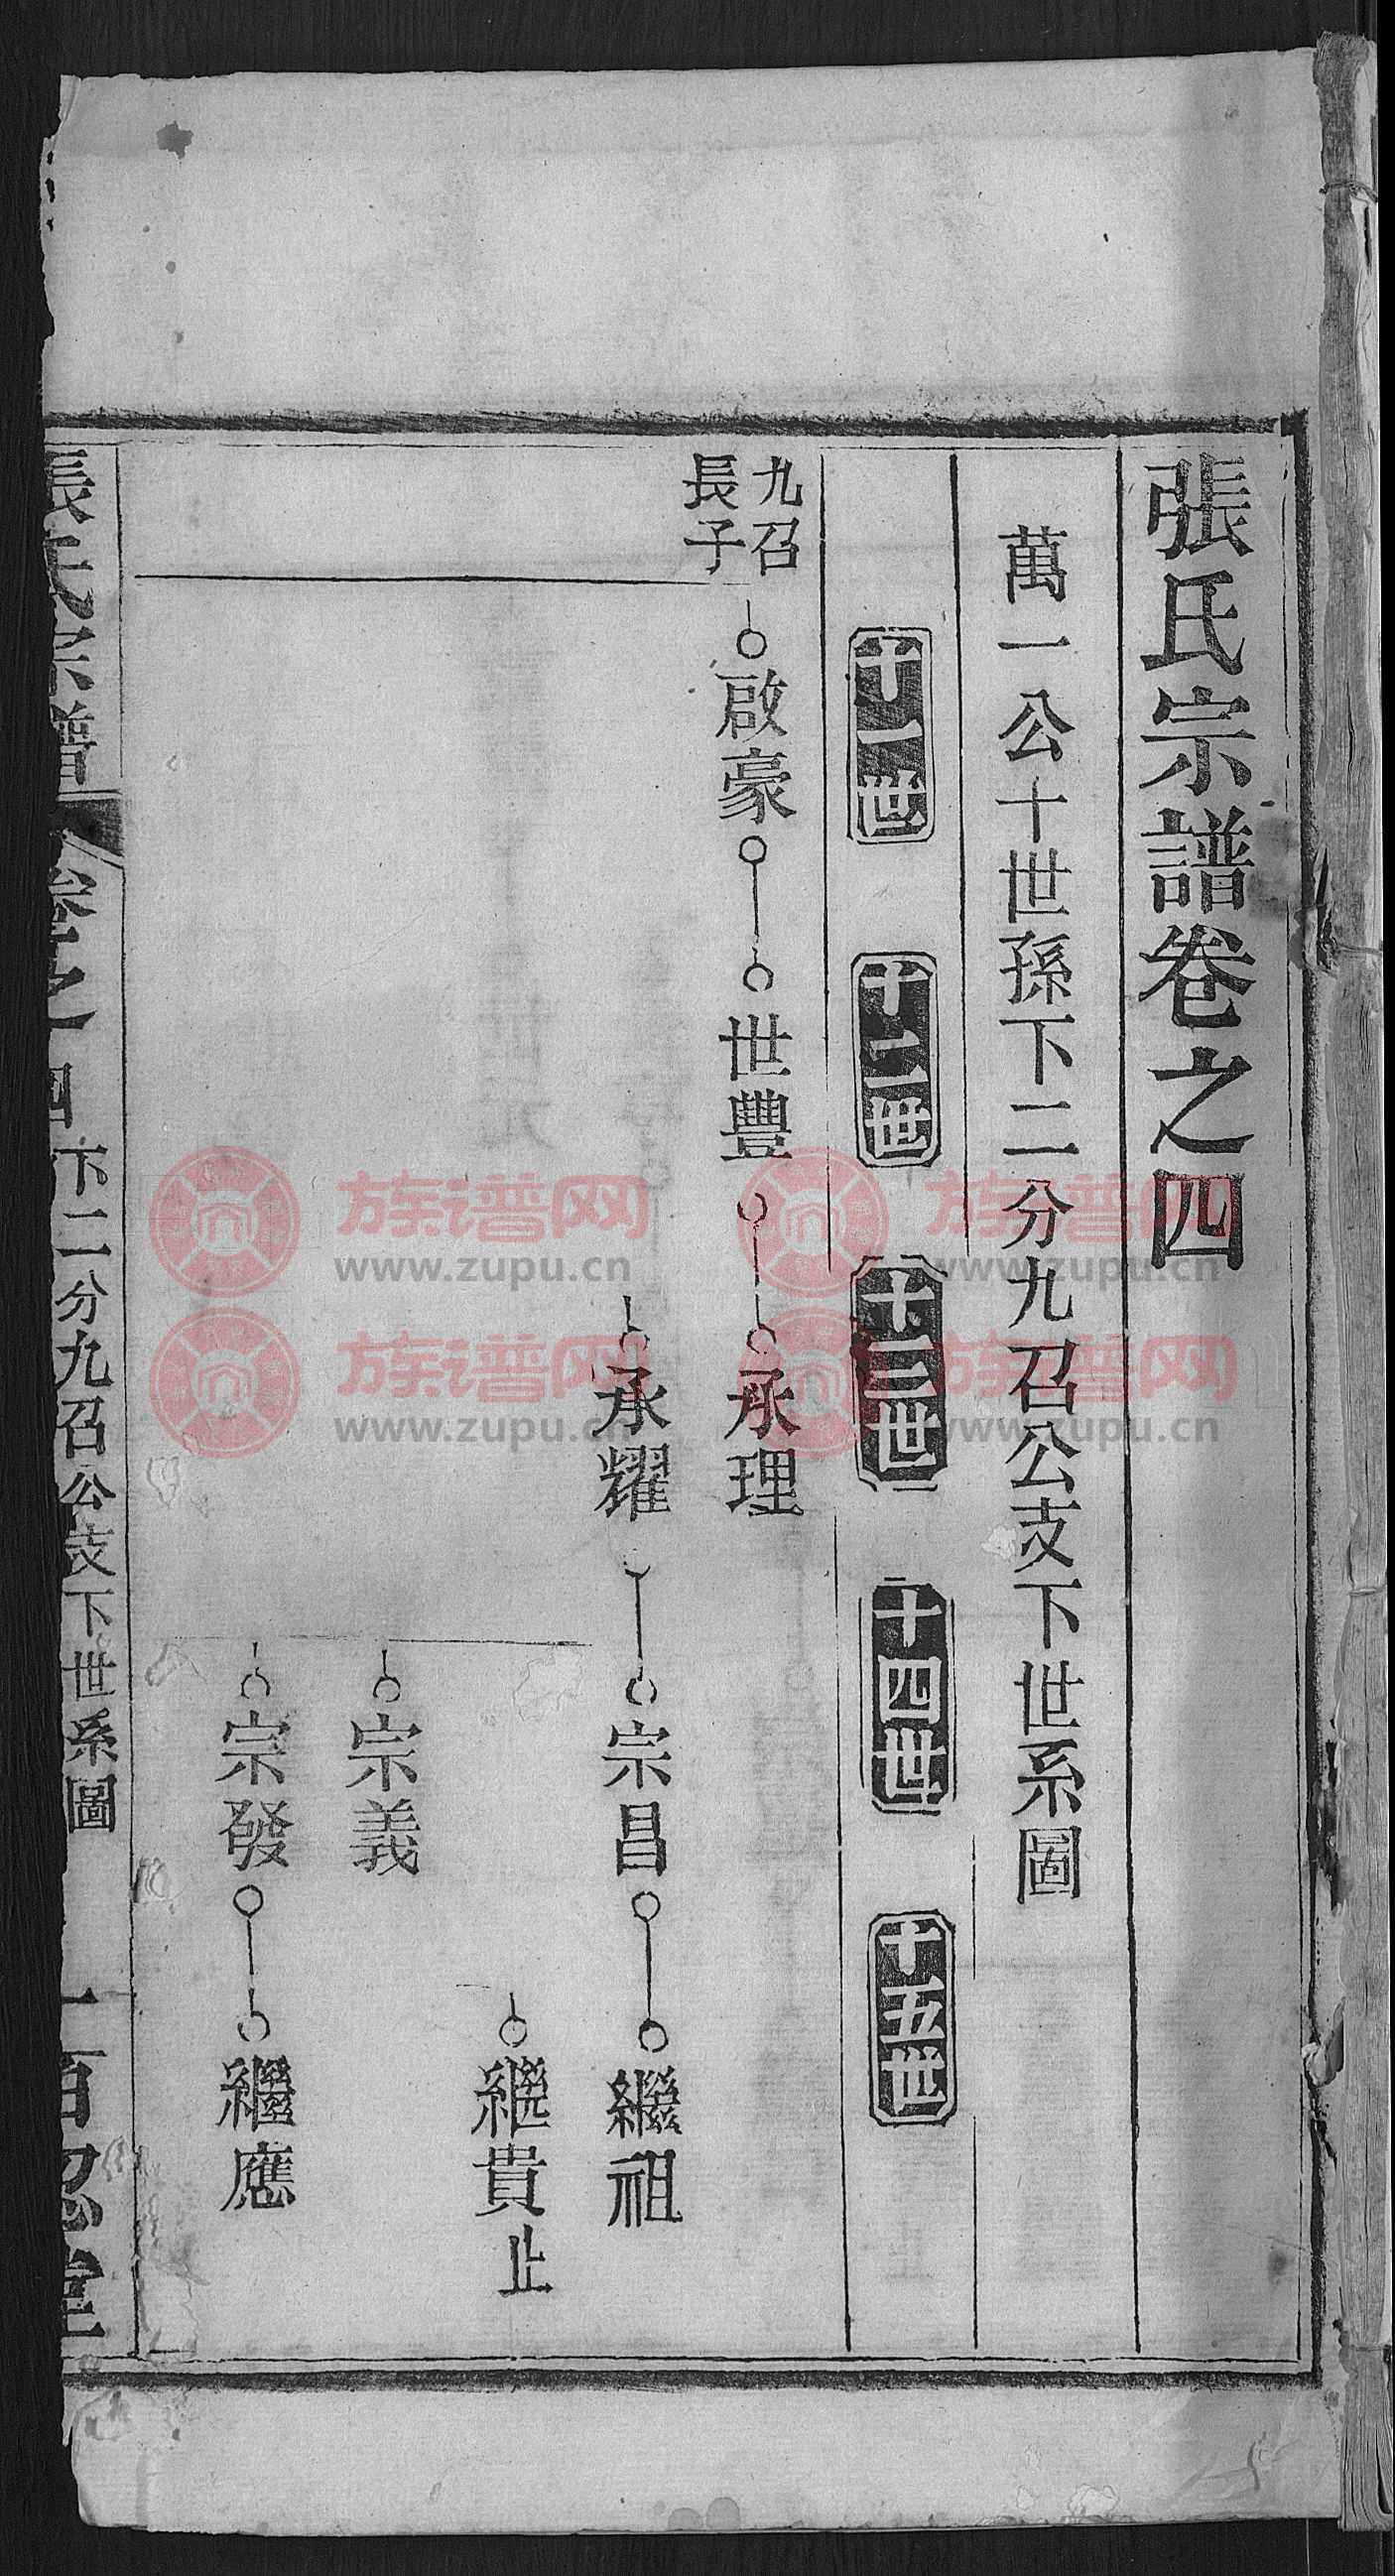 張氏宗譜卷之四
萬一公十世孫下二分九召公支下世系圖
十一世
十二世
十三世
十四世
十五世
九召
長子
啟豪
世豐
承理
承耀
宗昌
繼祖
繼貴止
宗義
宗發
繼應
張氏宗譜
卷之四
下二分九召公支下世系圖
一
百忍堂
族谱网
www.zupu.cn
族谱网
www.zupu.cn
族谱网
www.zupu.cn
族谱网
www.zupu.cn